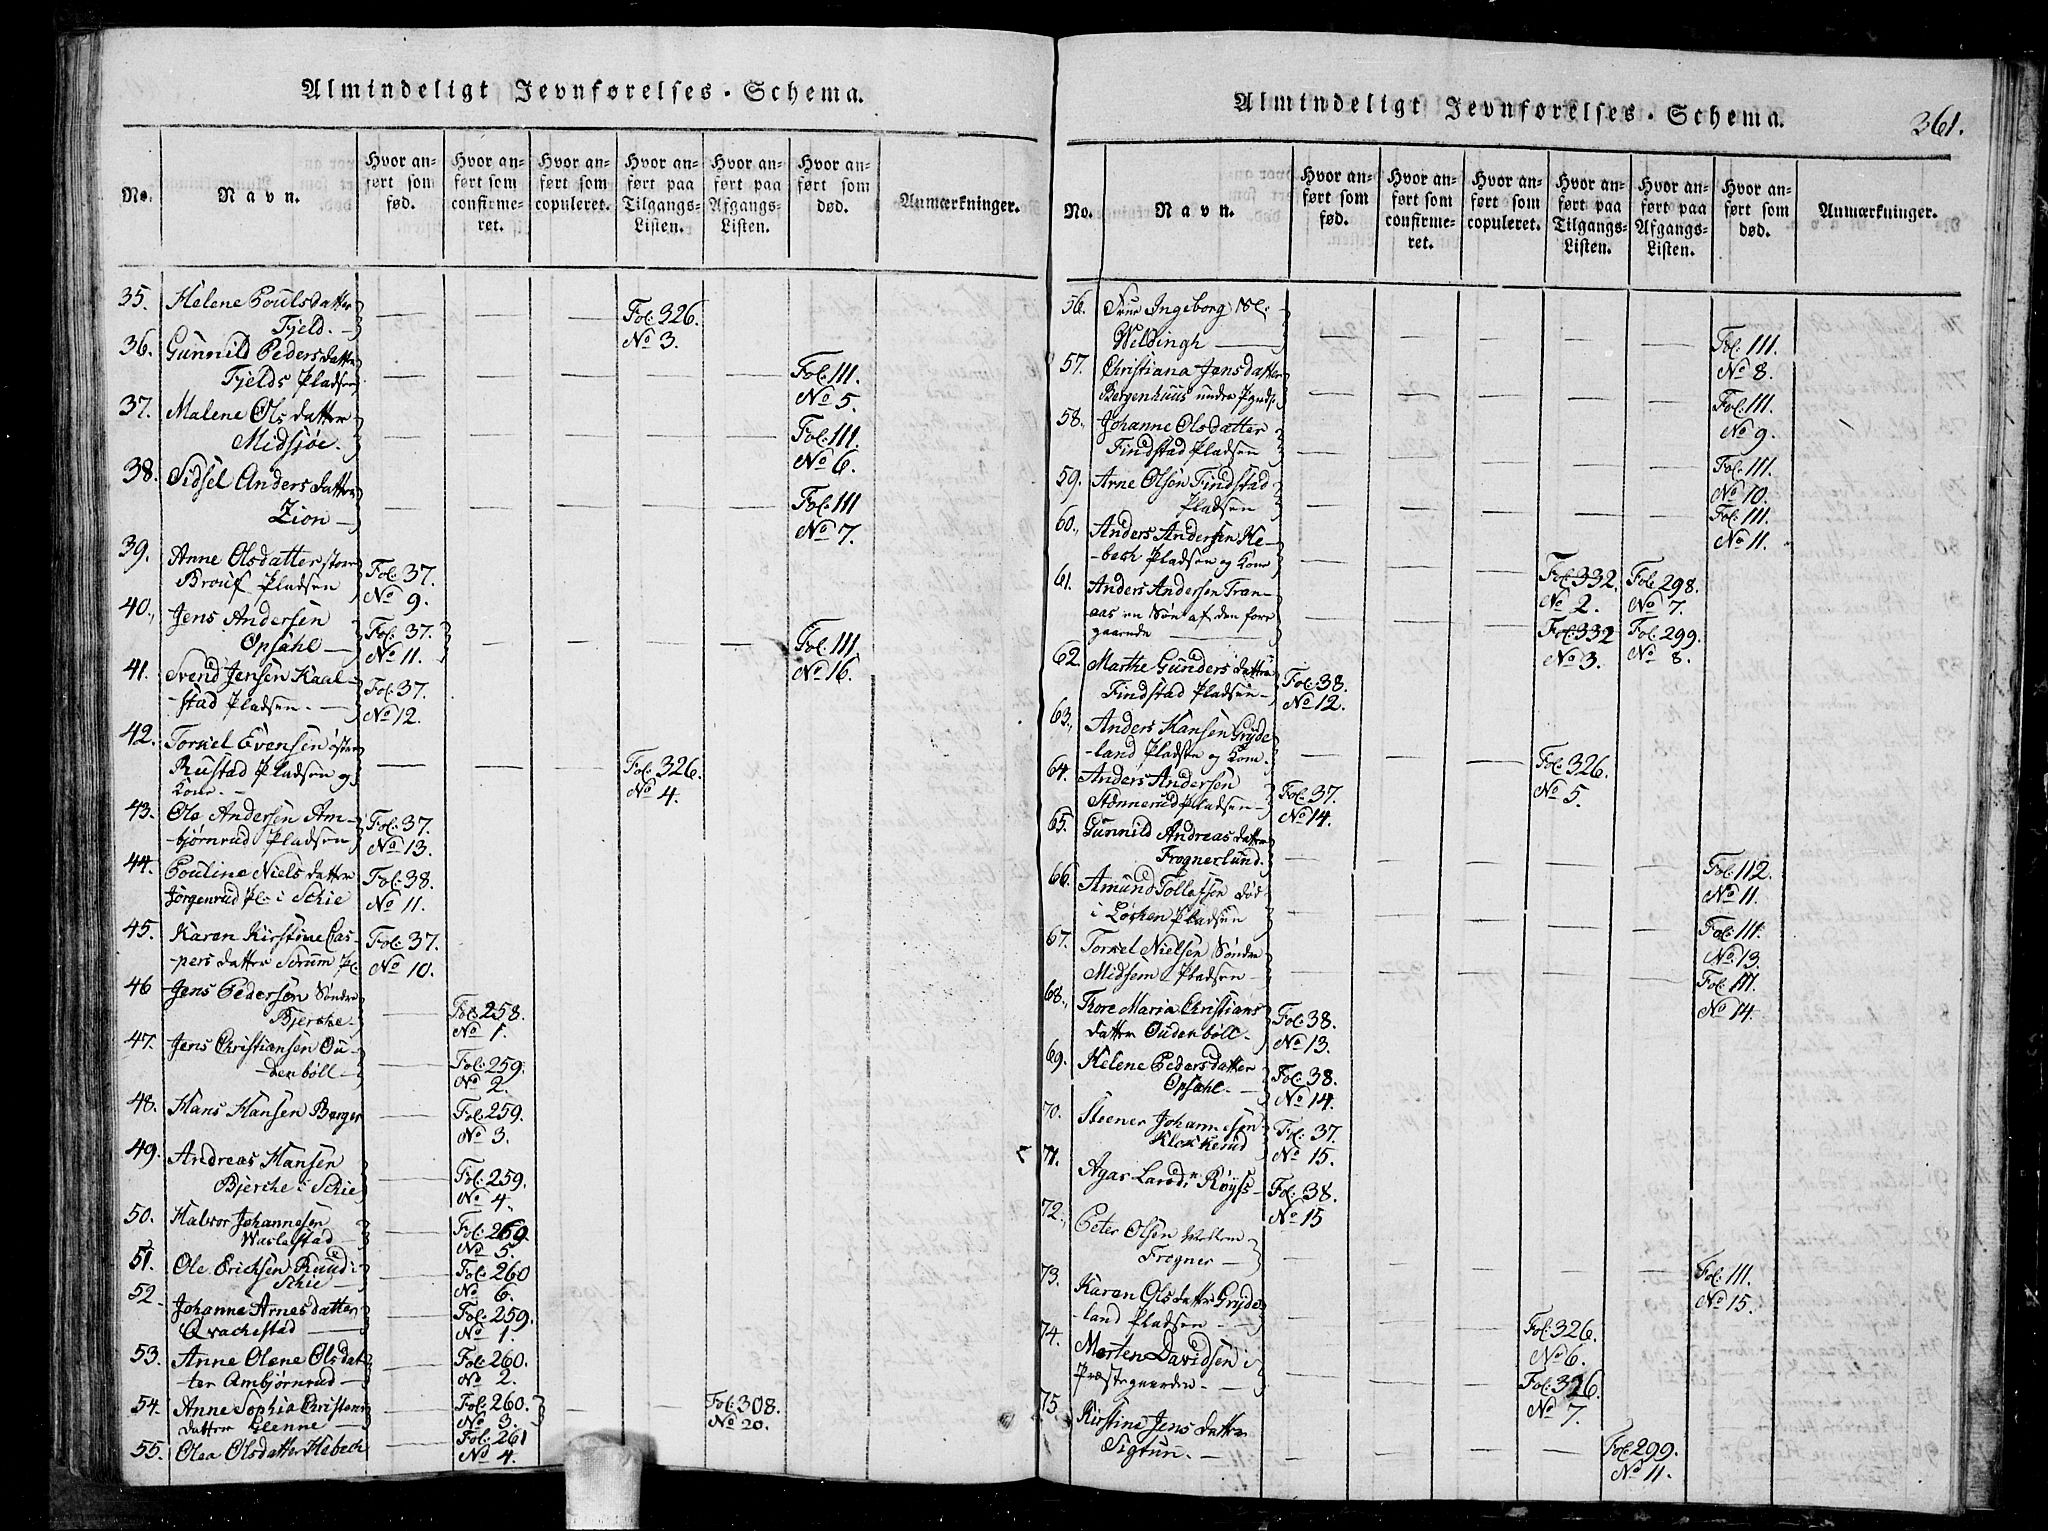 Almindeligt Jevnførelses-Schema.
No. Navn. Hvor anført som fød. Hvor anført som confirmeret. Hvor anført som copuleret. Hvor anført paa Tilgangs-Listen. Hvor anført paa Afgangs-Listen. Hvor anført som død. Anmærkninger.
35. Helene Poulsdatter
Fjeld. — Fol: 326. No 3.
36. Gunnild Pedersdatter
Fjelds Pladsen Fol: 111. No 5.
37. Malene Olsdatter
Midsjøe. Fol: 111. No 6.
38. Sidsel Andersdatter
Zion — Fol: 111 No 7.
39. Anne Olsdatter store
Brouf Pladsen Fol: 37. No 9.
40. Jens Andersen
Opsahl — Fol: 37. No 11. Fol: 111 No 16.
41. Svend Jensen Kaal-
-stad Pladsen. — Fol: 37. No 12.
42. Torkel Evensen öster
Rustad Pladsen og
Kone. — Fol: 326. No 4.
43. Ole Andersen Am-
-bjørnrud Pladsen Fol: 37. No 13.
44. Pouline Nielsdatter
Jørgenrud Pl: i Schie Fol: 38. No 11.
45. Karen Kirstine Cas-
-persdatter Sørum Pl: Fol: 37. No 10.
46 Jens Pedersen Söndre
Bjerche. Fol: 258. No 1.
47. Jens Christiansen Ou-
-denböll — Fol: 259. No 2.
48. Hans Hansen Berger Fol: 259. No 3.
49. Andreas Hansen
Bjerche i Schie Fol: 259. No 4.
50. Halvor Johannesen
Warlestad — Fol: 259. No 5.
51. Ole Ericksen Ruud i
Schie — Fol: 260 No 6.
52. Johanne Arnesdatter
Qvachestad — Fol: 259. No 1.
53. Anne Olene Olsdat-
-ter Ambjørnrud — Fol: 260. No 2.
54. Anne Sophia Christens
datter Glenne — Fol: 260. No 3. Fol: 308. No 20.
55. Olea Olsdatter Hebech Fol: 261 No 4.
Almindeligt Jevnførelses-Schema. 361.
No. Navn. Hvor anført som fød. Hvor anført som confirmeret. Hvor anført som copuleret. Hvor anført paa Tilgangs-Listen. Hvor anført paa Afgangs-Listen. Hvor anført som død. Anmærkninger.
56. Frue Ingeborg
Weldingh — Fol: 111. No 8.
57. Christiana Jensdatter
Bergenhuus Fol: 111. No 9.
58. Johanne Olsdatter
Findstad Pladsen Fol: 111. No 10.
59. Arne Olsen Findstad
Pladsen Fol: 111. No 11.
60. Anders Andersen He-
-bech Pladsen og Kone Fol: 332. No 2. Fol: 298. No 7.
61. Anders Andersen Tran-
-aas en Søn af den fore
gaaende — Fol: 332 No 3. Fol: 299. No 8.
62. Marthe Gundersdatter
Findstad Pladsen — Fol: 38. No 12.
63. Anders Hansen Gryde
-land Pladsen og Kone. Fol: 326. No 5.
64. Anders Andersen
Stönnerud Pladsen — Fol: 37. No 14.
65. Gunnild Andreasdatter
Frognerlund. Fol: 112. No 11.
66. Amund Tollefsen död
i Löchen Pladsen Fol: 111. No 13.
67. Torkel Nielsen Söndre
Midsem Pladsen — Fol: 111. No 14.
68. Thore Maria Christians
datter Oudenböll — Fol: 38. No 13.
69. Helene Pedersdatter
Opsahl — Fol: 38. No 14.
70. Steener Johannesen
Klokkerud Fol: 37. No 15.
71. Agar Larsd: Röyss — Fol: 38. No 15
72. Peter Olsen
Frogner — Fol: 111. No 15.
73. Karen Olsdatter Gryde
-land Pladsen — Fol: 326. No 6.
74. Morten Davidsen i
Præstegaarden — Fol: 326. No 7.
75. Kirstine Jensdatter
Sigtun. — Fol: 299. No 11.